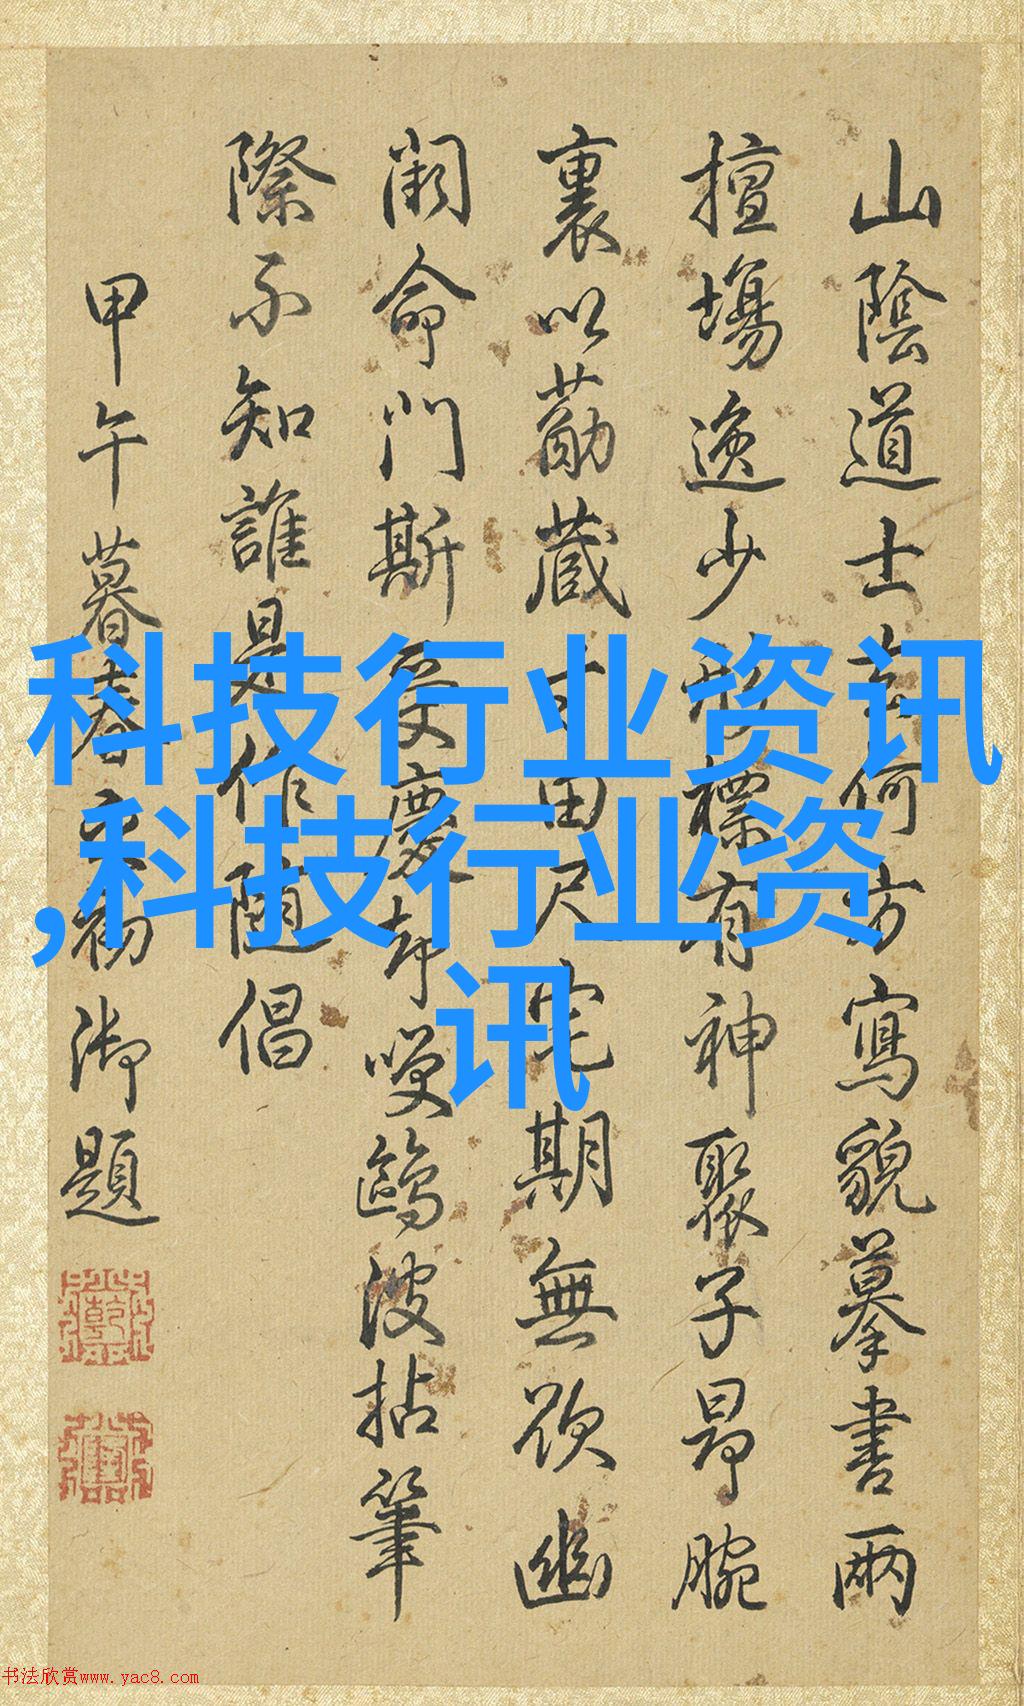 山陰道士何方寫貌摹書兩
擅場逸少形標有神聚子昂腕
裏以勗蔵田尺宅期無欲幽
闕命門斯受慶却嘆鷗波拈筆
際不知誰是作隨倡
甲午暮春之初御題
科技行业资讯
,科技行业资
讯
书法欣赏www.yac8.com